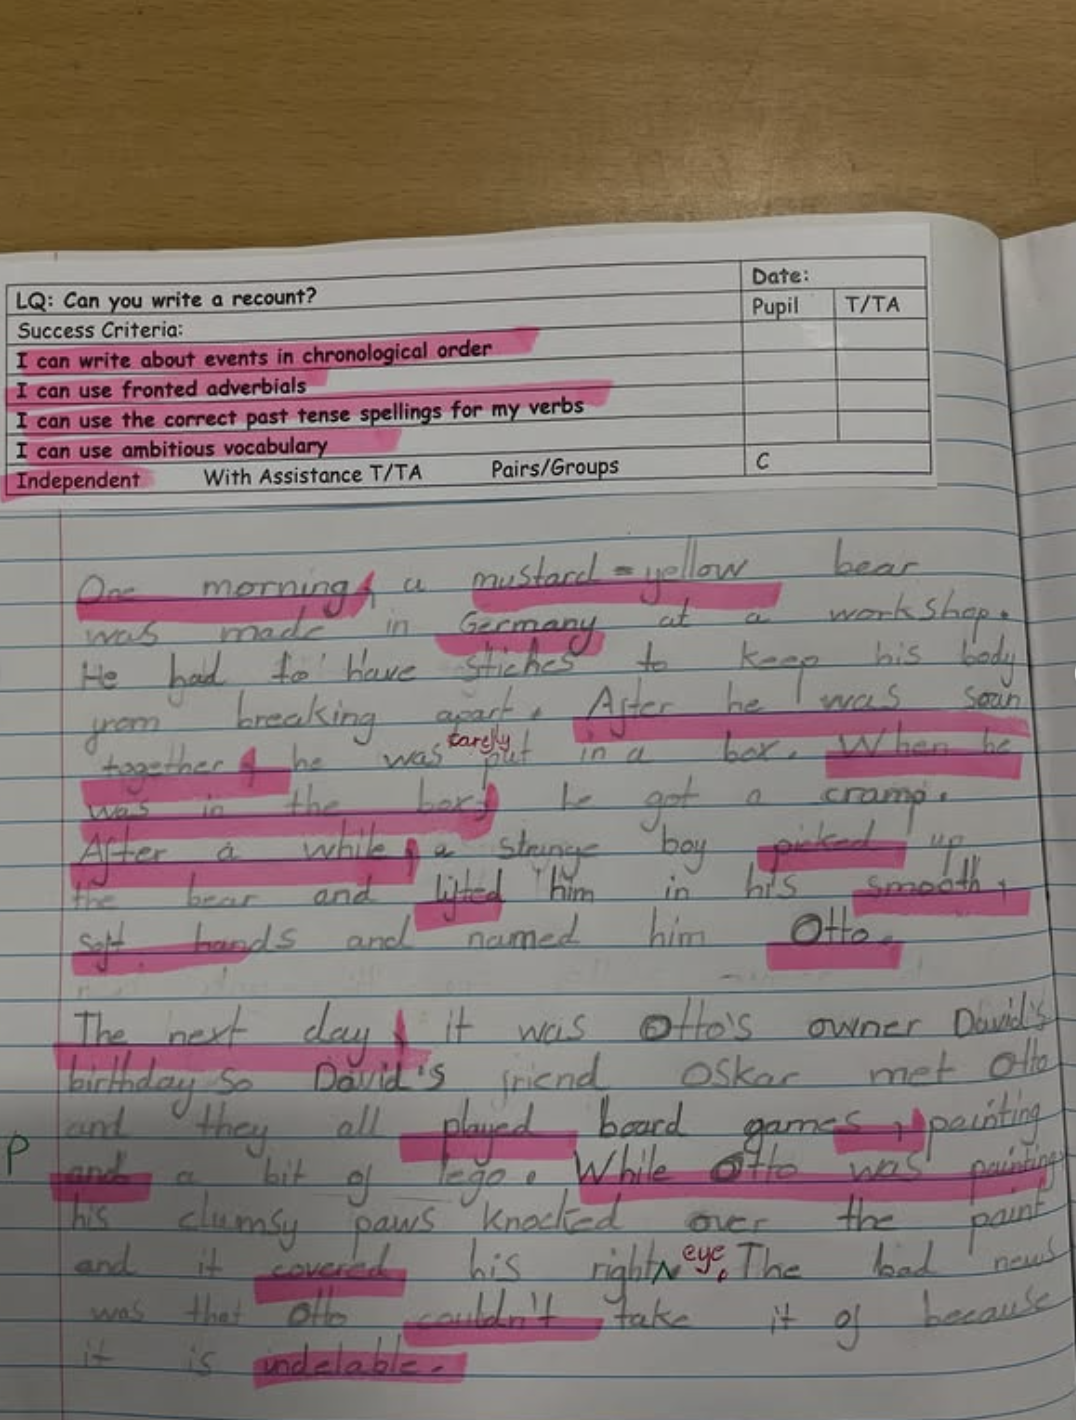 LQ: Can you write a recount?
Date:
Success Criteria:
Pupil
T/TA
I can write about events in chronological order
I can use fronted adverbials
I can use the correct past tense spellings for my verbs
I can use ambitious vocabulary
Independent With Assistance T/TA Pairs/Groups
C
One morning, a mustard-yellow bear
was made in Germany at a workshop.
He had to have stiches to keep his body
from breaking apart. After he was soun
together, he was carefly put in a box. When he
was in the box, he got a cramp.
After a while, a strange boy picked up
the bear and lifted him in his smooth,
soft hands and named him Otto.
The next day, it was Otto's owner David's
birthday so David's friend Oskar met Otto
and they all played board games, painting
P
and a bit of lego. While Otto was painting
his clumsy paws knocked over the paint
and it covered his right eye. The bad news
was that Otto couldn't take it of because
it is indelable.